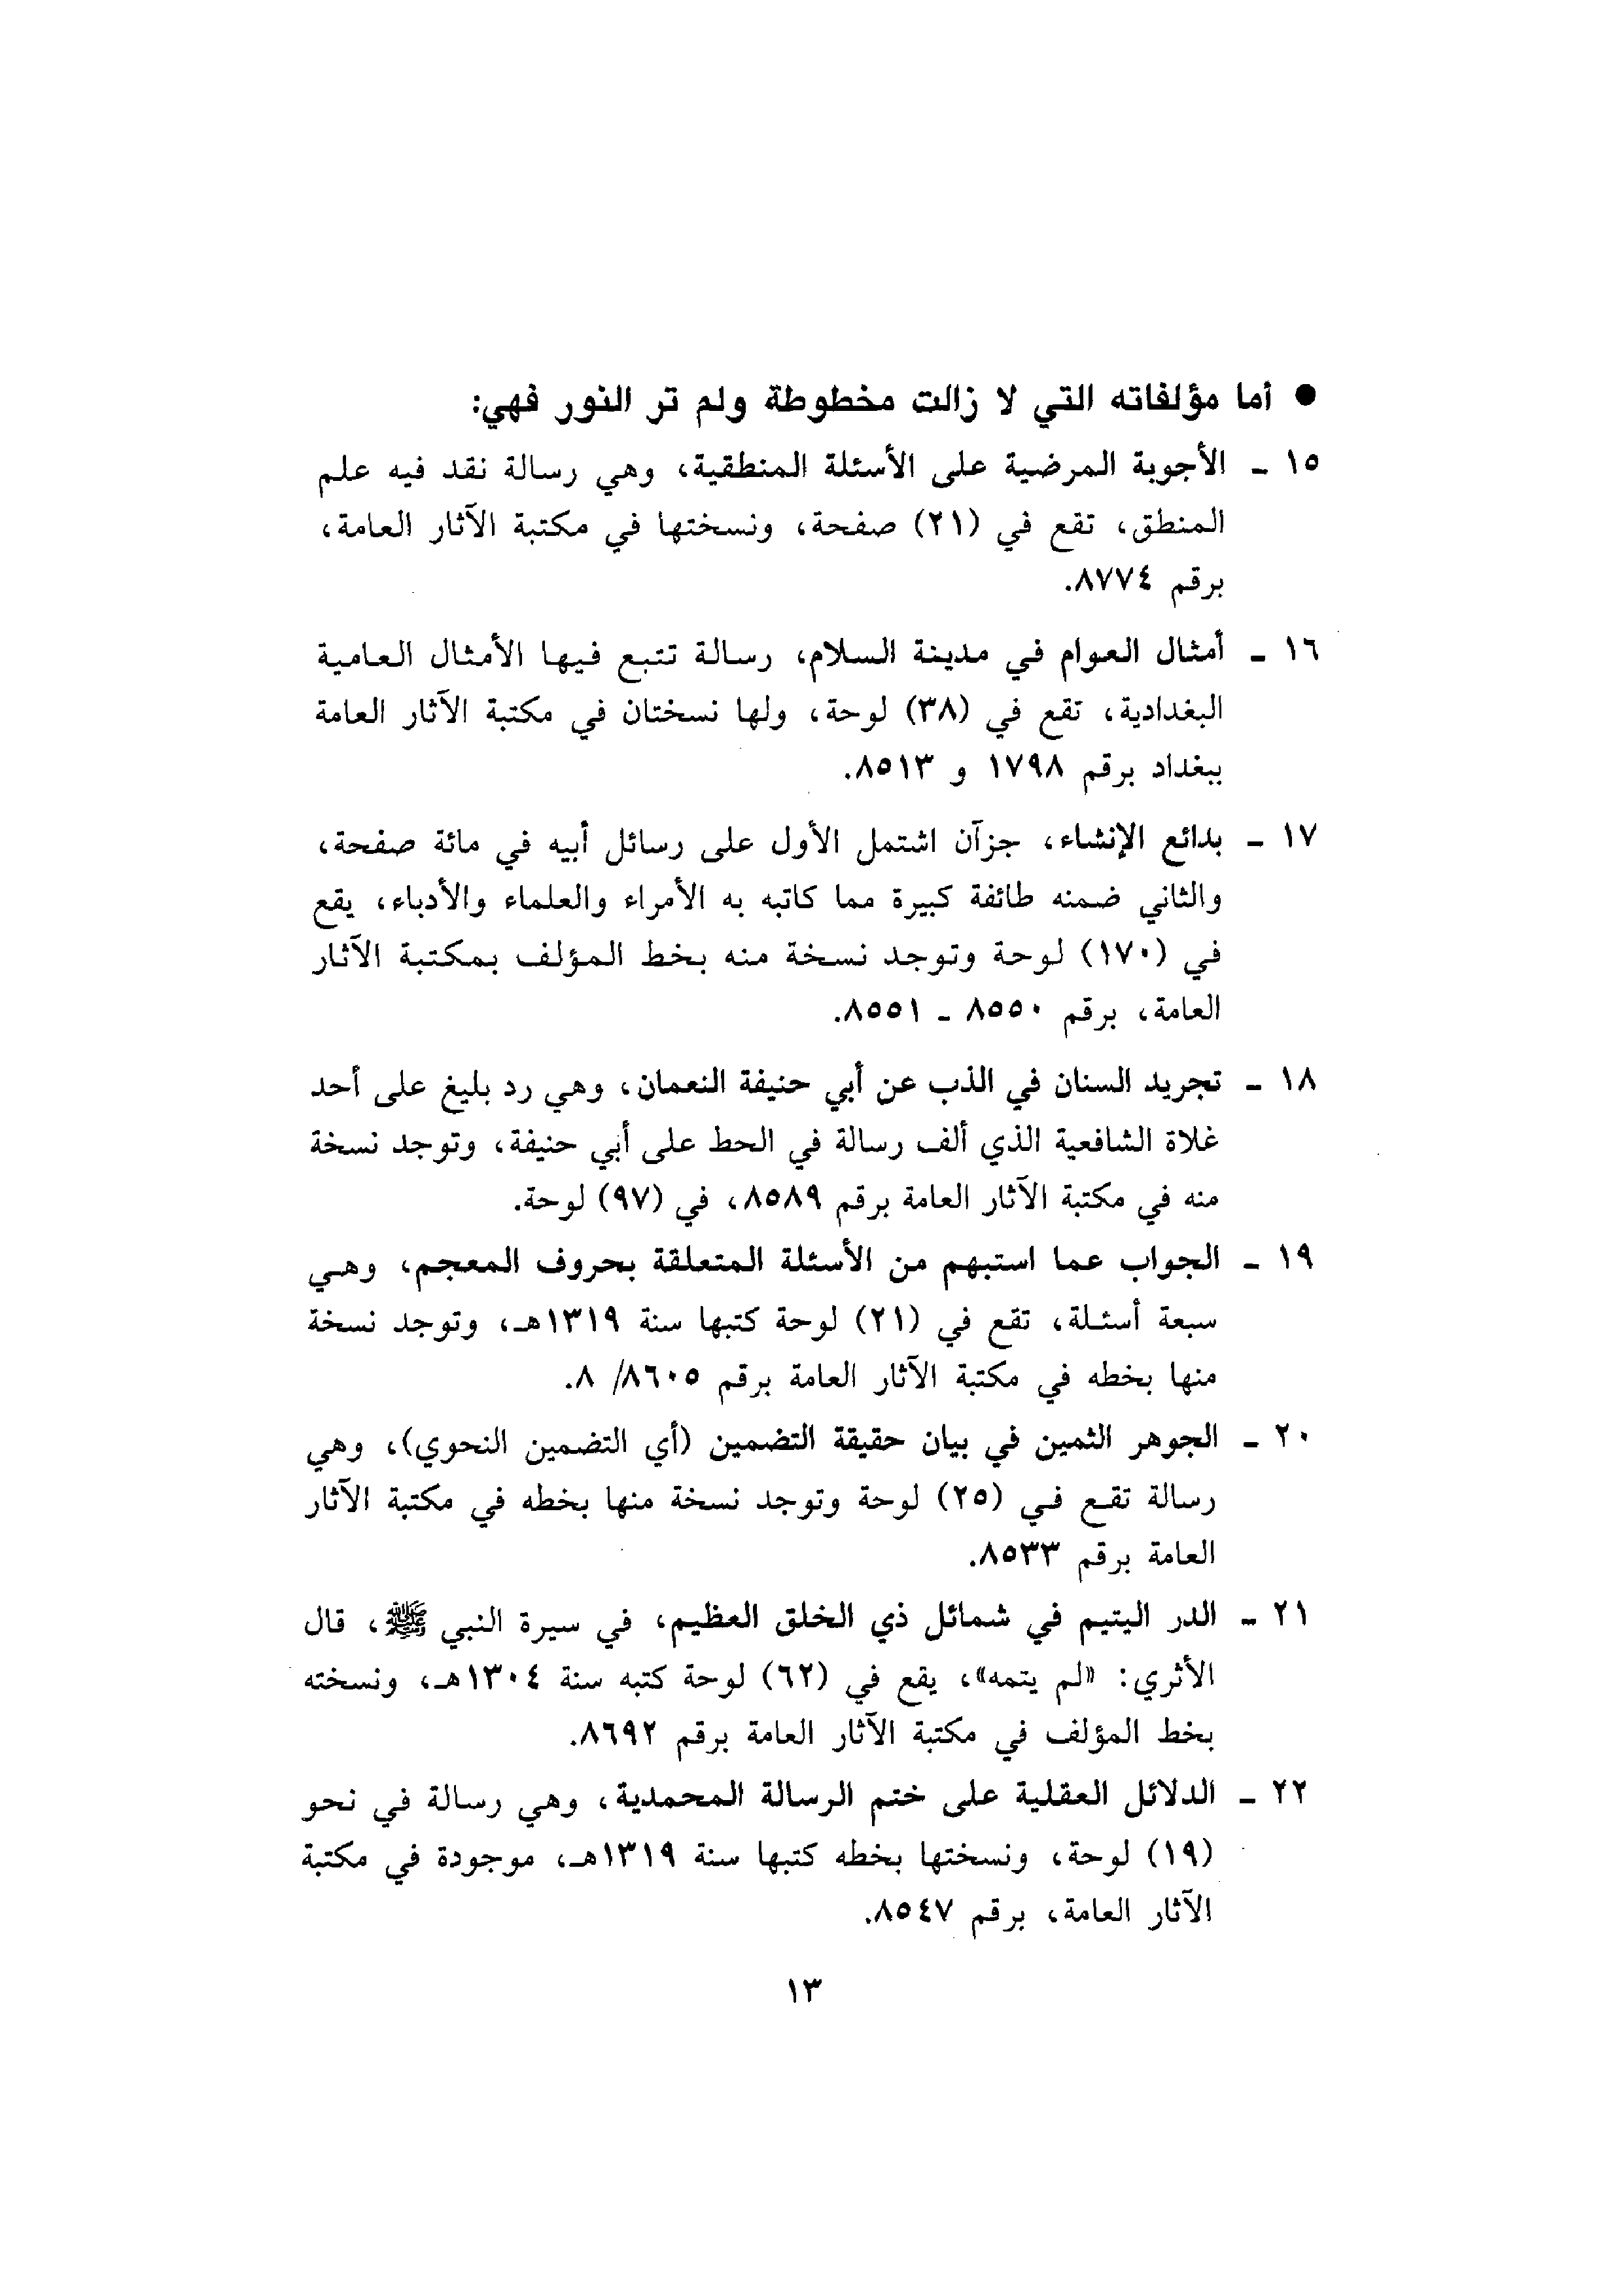 ● أما مؤلفاته التي لا زالت مخطوطة ولم تر النور فهي:
١٥ - الأجوبة المرضية على الأسئلة المنطقية، وهي رسالة نقد فيه علم
المنطق، تقع في (٢١) صفحة، ونسختها في مكتبة الآثار العامة،
برقم ٨٧٧٤.
١٦ - أمثال العوام في مدينة السلام، رسالة تتبع فيها الأمثال العامية
البغدادية، تقع في (٣٨) لوحة، ولها نسختان في مكتبة الآثار العامة
ببغداد برقم ١٧٩٨ و ٨٥١٣.
١٧ - بدائع الإنشاء، جزآن اشتمل الأول على رسائل أبيه في مائة صفحة،
والثاني ضمنه طائفة كبيرة مما كاتبه به الأمراء والعلماء والأدباء، يقع
في (١٧٠) لوحة وتوجد نسخة منه بخط المؤلف بمكتبة الآثار
العامة، برقم ٨٥٥٠ - ٨٥٥١.
١٨ - تجريد السنان في الذب عن أبي حنيفة النعمان، وهي رد بليغ على أحد
غلاة الشافعية الذي ألف رسالة في الحط على أبي حنيفة، وتوجد نسخة
منه في مكتبة الآثار العامة برقم ٨٥٨٩، في (٩٧) لوحة.
١٩ - الجواب عما استبهم من الأسئلة المتعلقة بحروف المعجم، وهي
سبعة أسئلة، تقع في (٢١) لوحة كتبها سنة ١٣١٩هـ، وتوجد نسخة
منها بخطه في مكتبة الآثار العامة برقم ٨٦٠٥/ ٨.
٢٠ - الجوهر الثمين في بيان حقيقة التضمين (أي التضمين النحوي)، وهي
رسالة تقع في (٢٥) لوحة وتوجد نسخة منها بخطه في مكتبة الآثار
العامة برقم ٨٥٣٣.
٢١ - الدر اليتيم في شمائل ذي الخلق العظيم، في سيرة النبي ﷺ، قال
الأثري: «لم يتمه»، يقع في (٦٢) لوحة كتبه سنة ١٣٠٤هـ، ونسخته
بخط المؤلف في مكتبة الآثار العامة برقم ٨٦٩٢.
٢٢ - الدلائل العقلية على ختم الرسالة المحمدية، وهي رسالة في نحو
(١٩) لوحة، ونسختها بخطه كتبها سنة ١٣١٩هـ، موجودة في مكتبة
الآثار العامة، برقم ٨٥٤٧.
١٣